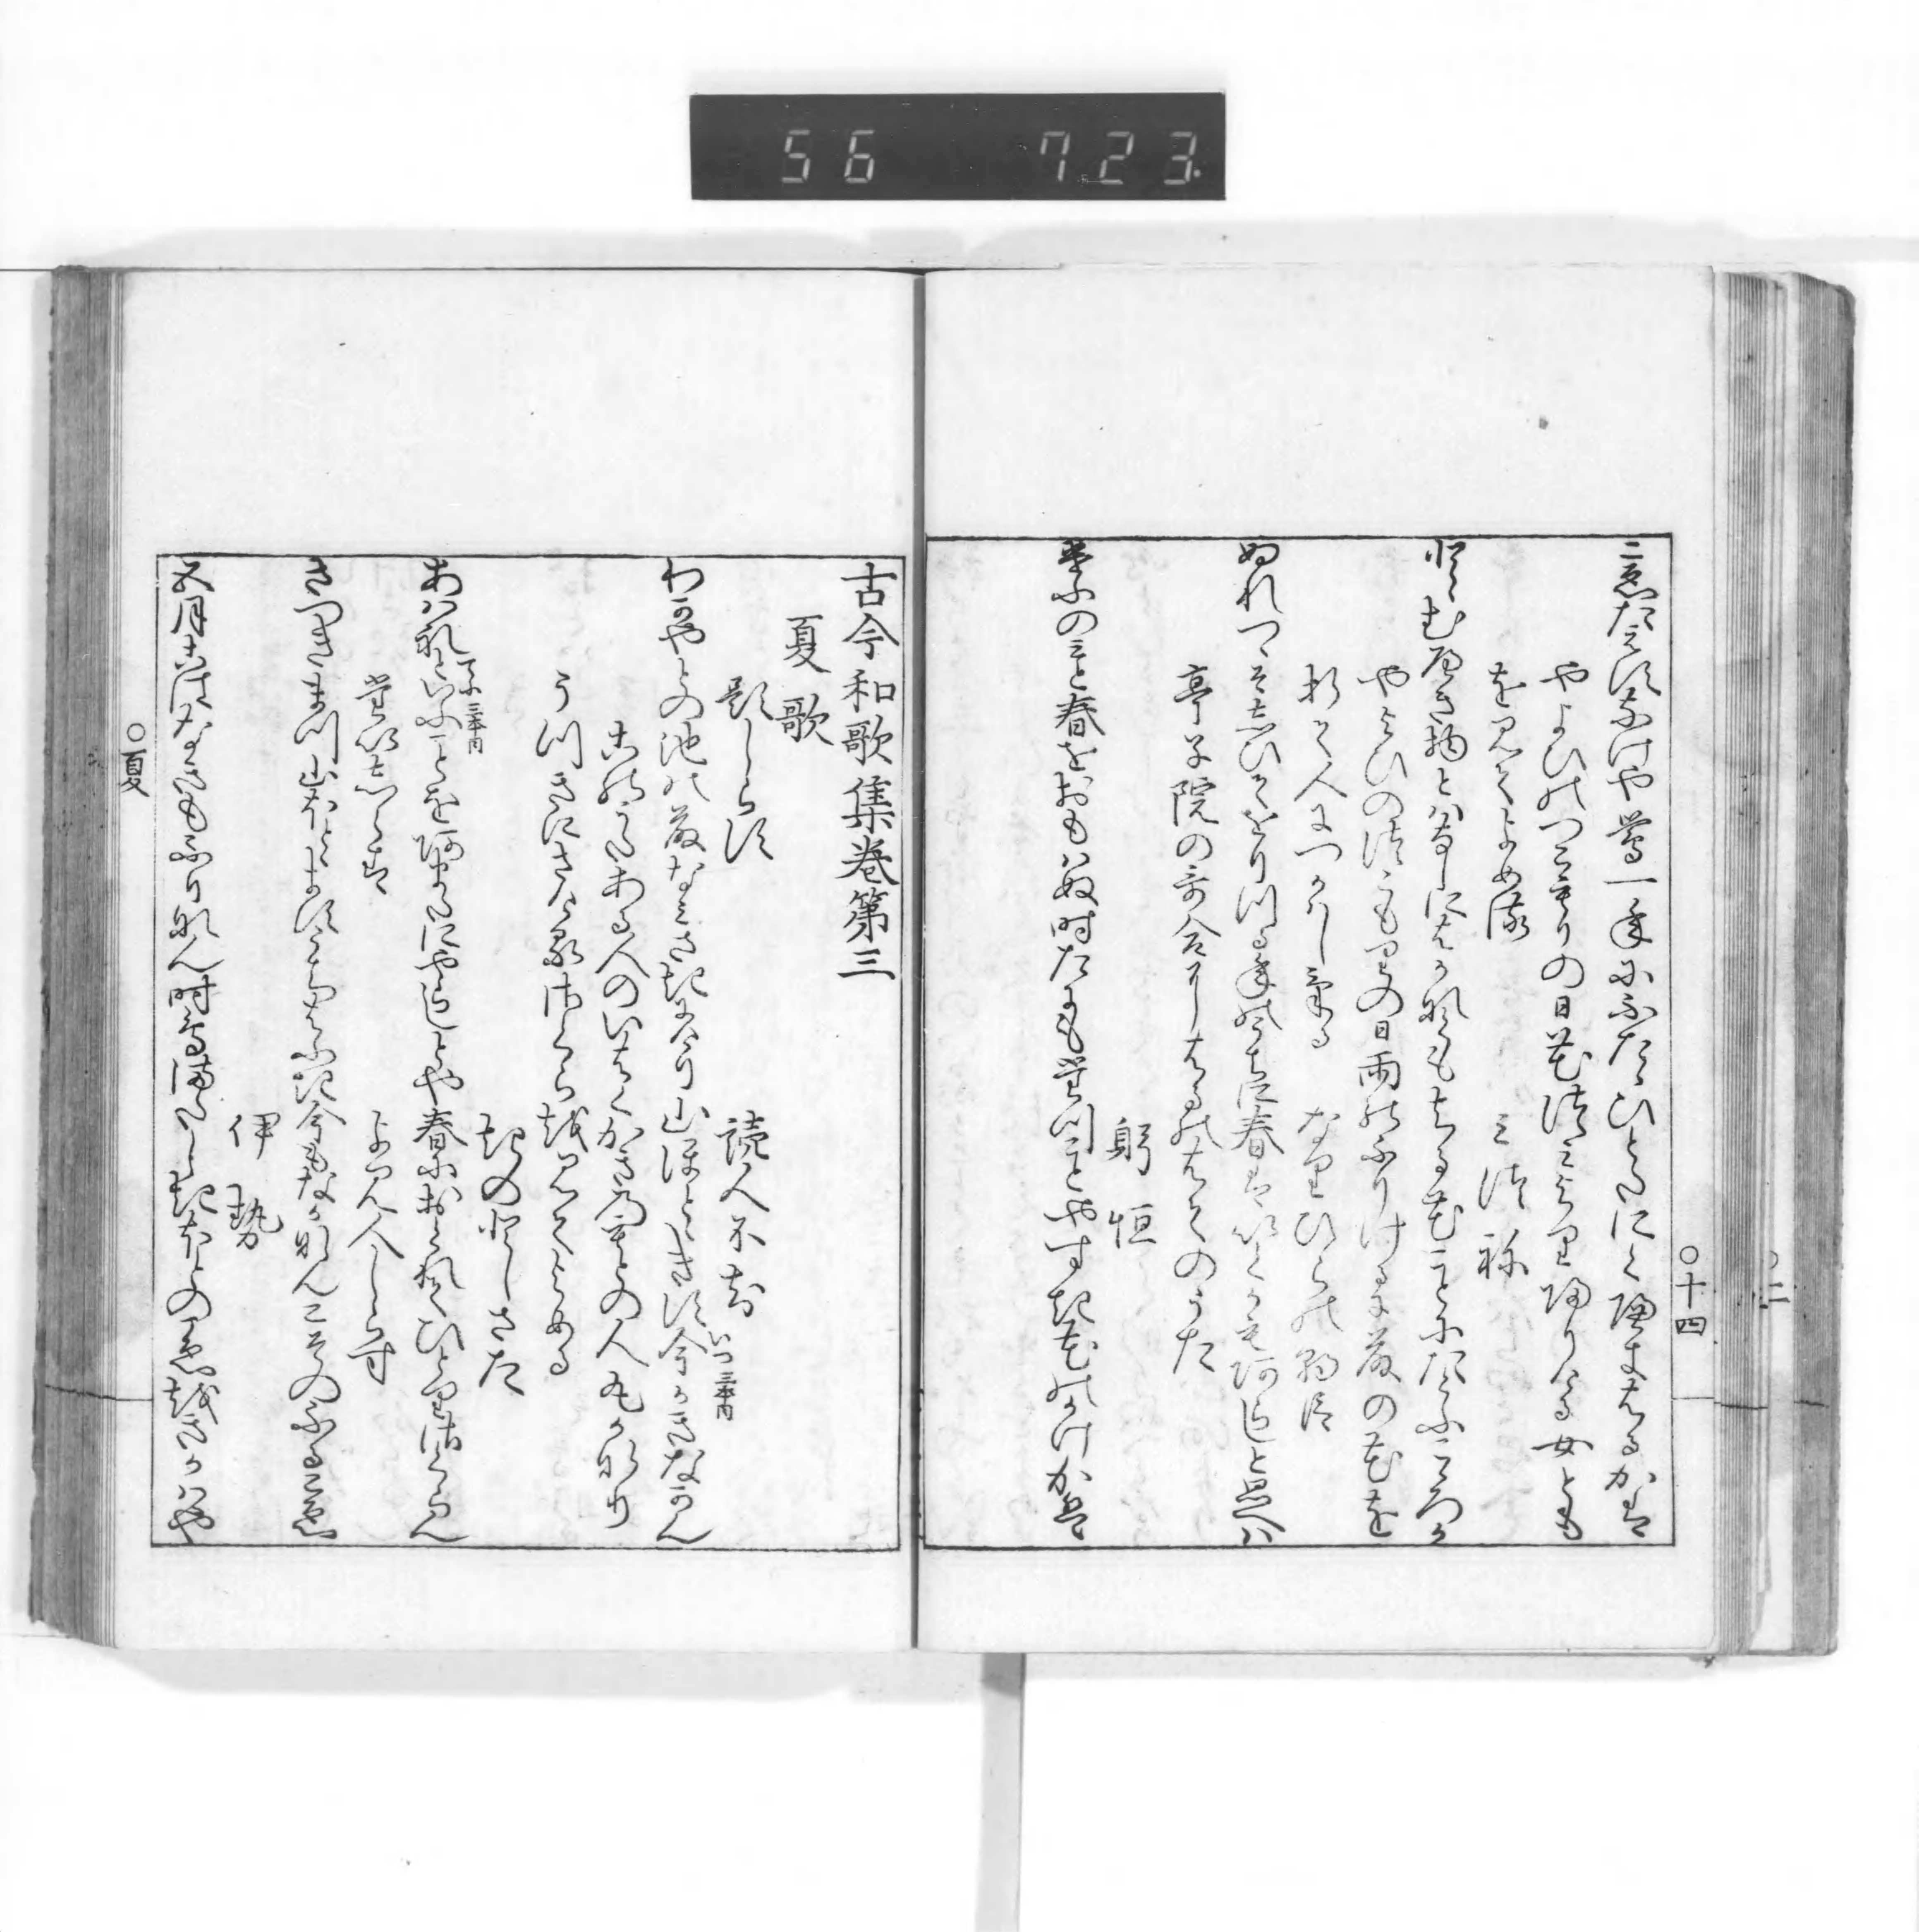 56 723.
こゑたえすなけや鶯一年にふたゝひとたにくへきはるかは
やよひのつこもりの日花つみより帰りける女とも
を見てよめる
みつね
とゝむへき物とはなしにはかなくもちる花ことにたくふこゝろか
やよひのつこもりの日雨のふりけるに藤の花を
折て人につかはしける
なりひらの朝臣
ぬれつゝそしひておりつる年の内に春はいくかもあらしと思へは
亭子院の哥合にはるのはてのうた
躬恒
けふのみと春をおもはぬ時たにも立ことやすき花のかけかは
○十四
○二
古今和歌集巻第三
夏歌
題しらす
読人不知
わかやとの池の藤なみさきにけり山ほとゝきす今かきなかん
いつ三本内
このうたある人のいはくかきのもとの人丸か也
う月にさける桜を見てよめる
紀のとしさた
あはれてふことをあまたにやらしとや春におくれてひとりさくらん
てふ三本内
題しらす
よみ人しらす
さつきまつ山ほとゝきすうちはふき今もなかなんこその
ふるこゑ
伊勢
五月こはなきもふりなん時鳥またしきほとのこゑをきかはや
○夏